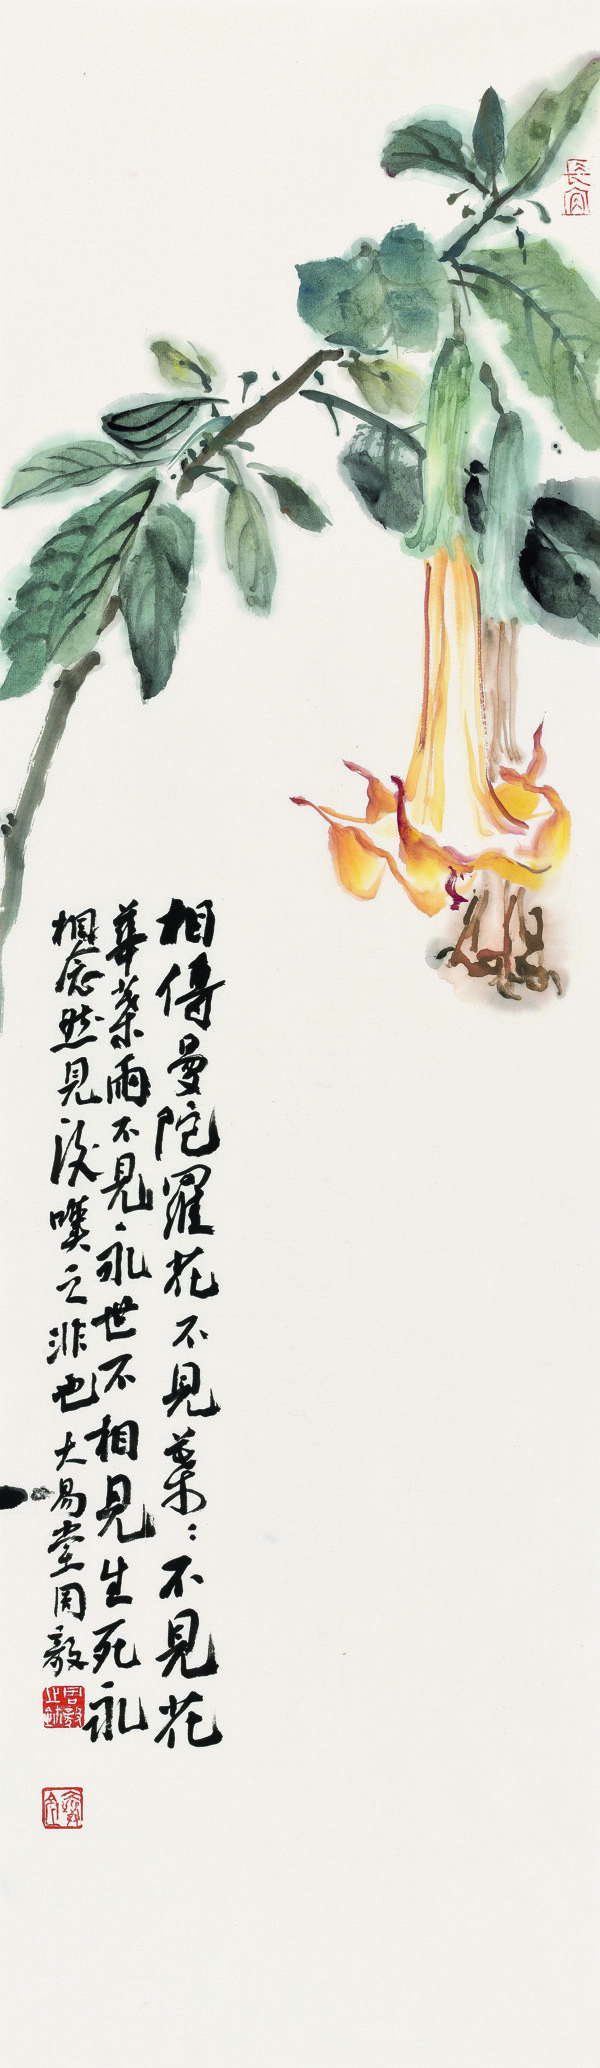 長宜
相傳曼陀羅花不見葉：不見花
華葉兩不見、永世不相見生死永
相念然見後嘆之非也大易堂周毅